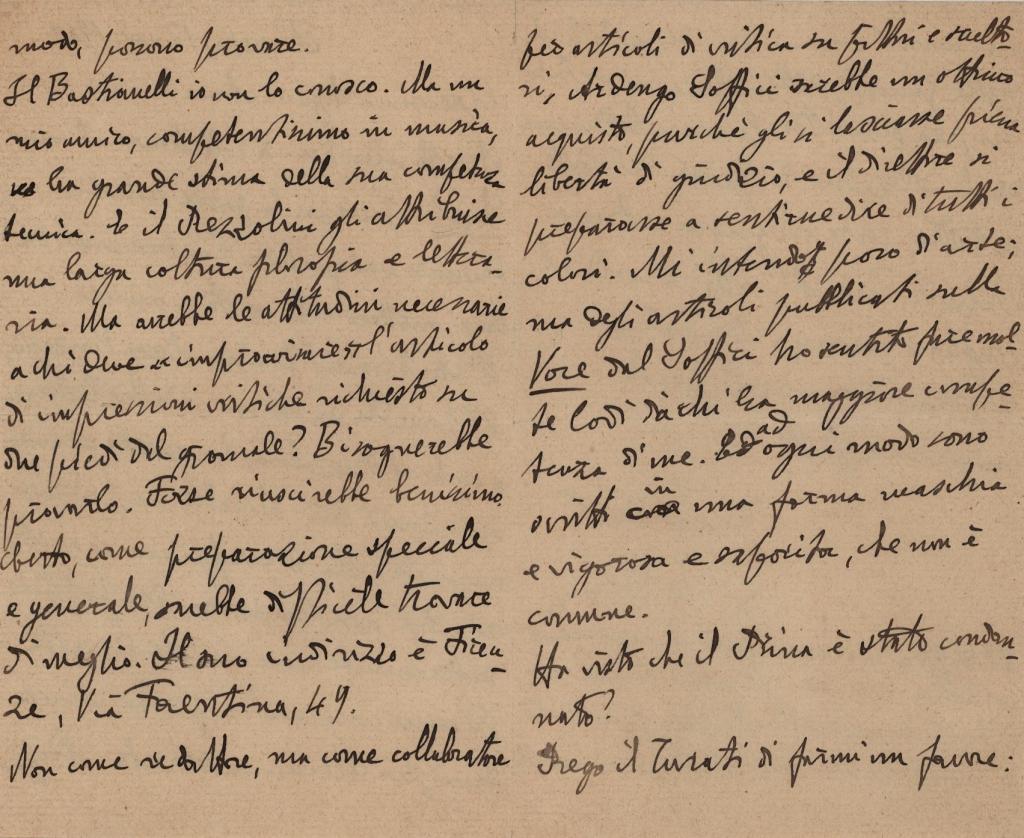 modo, possono provare.
Il Bastianelli io non lo conosco. Ma un
mio amico, competentissimo in musica,
ha grande stima della sua competenza
tecnica. E il Prezzolini gli attribuisce
una larga coltura filosofica e lettera-
ria. Ma avrebbe le attitudini necessarie
a chi deve improvvisare l'articolo
di impressioni critiche richiesto su
due piedi dal giornale? Bisognerebbe
provarlo. Forse riuscirebbe benissimo.
Certo, come preparazione speciale
e generale, sarebbe difficile trovare
di meglio. Il suo indirizzo è Firen-
ze, Via Faentina, 49.
Non come redattore, ma come collaboratore
per articoli di critica su pittori e sculto-
ri, Ardengo Soffici sarebbe un ottimo
acquisto, purchè gli si lasciasse piena
libertà di giudizio, e il direttore si
preparasse a sentirne dire di tutti i
colori. Mi intendo poco d'arte;
ma degli articoli pubblicati sulla
Voce dal Soffici ho sentito fare mol-
te lodi da chi ha maggiore compe-
tenza di me. Ed ad ogni modo sono
scritti in una forma maschia
e vigorosa e saporita, che non è
comune.
Ha visto che il Prina è stato condan-
nato?
Prego il Turati di farmi un favore: